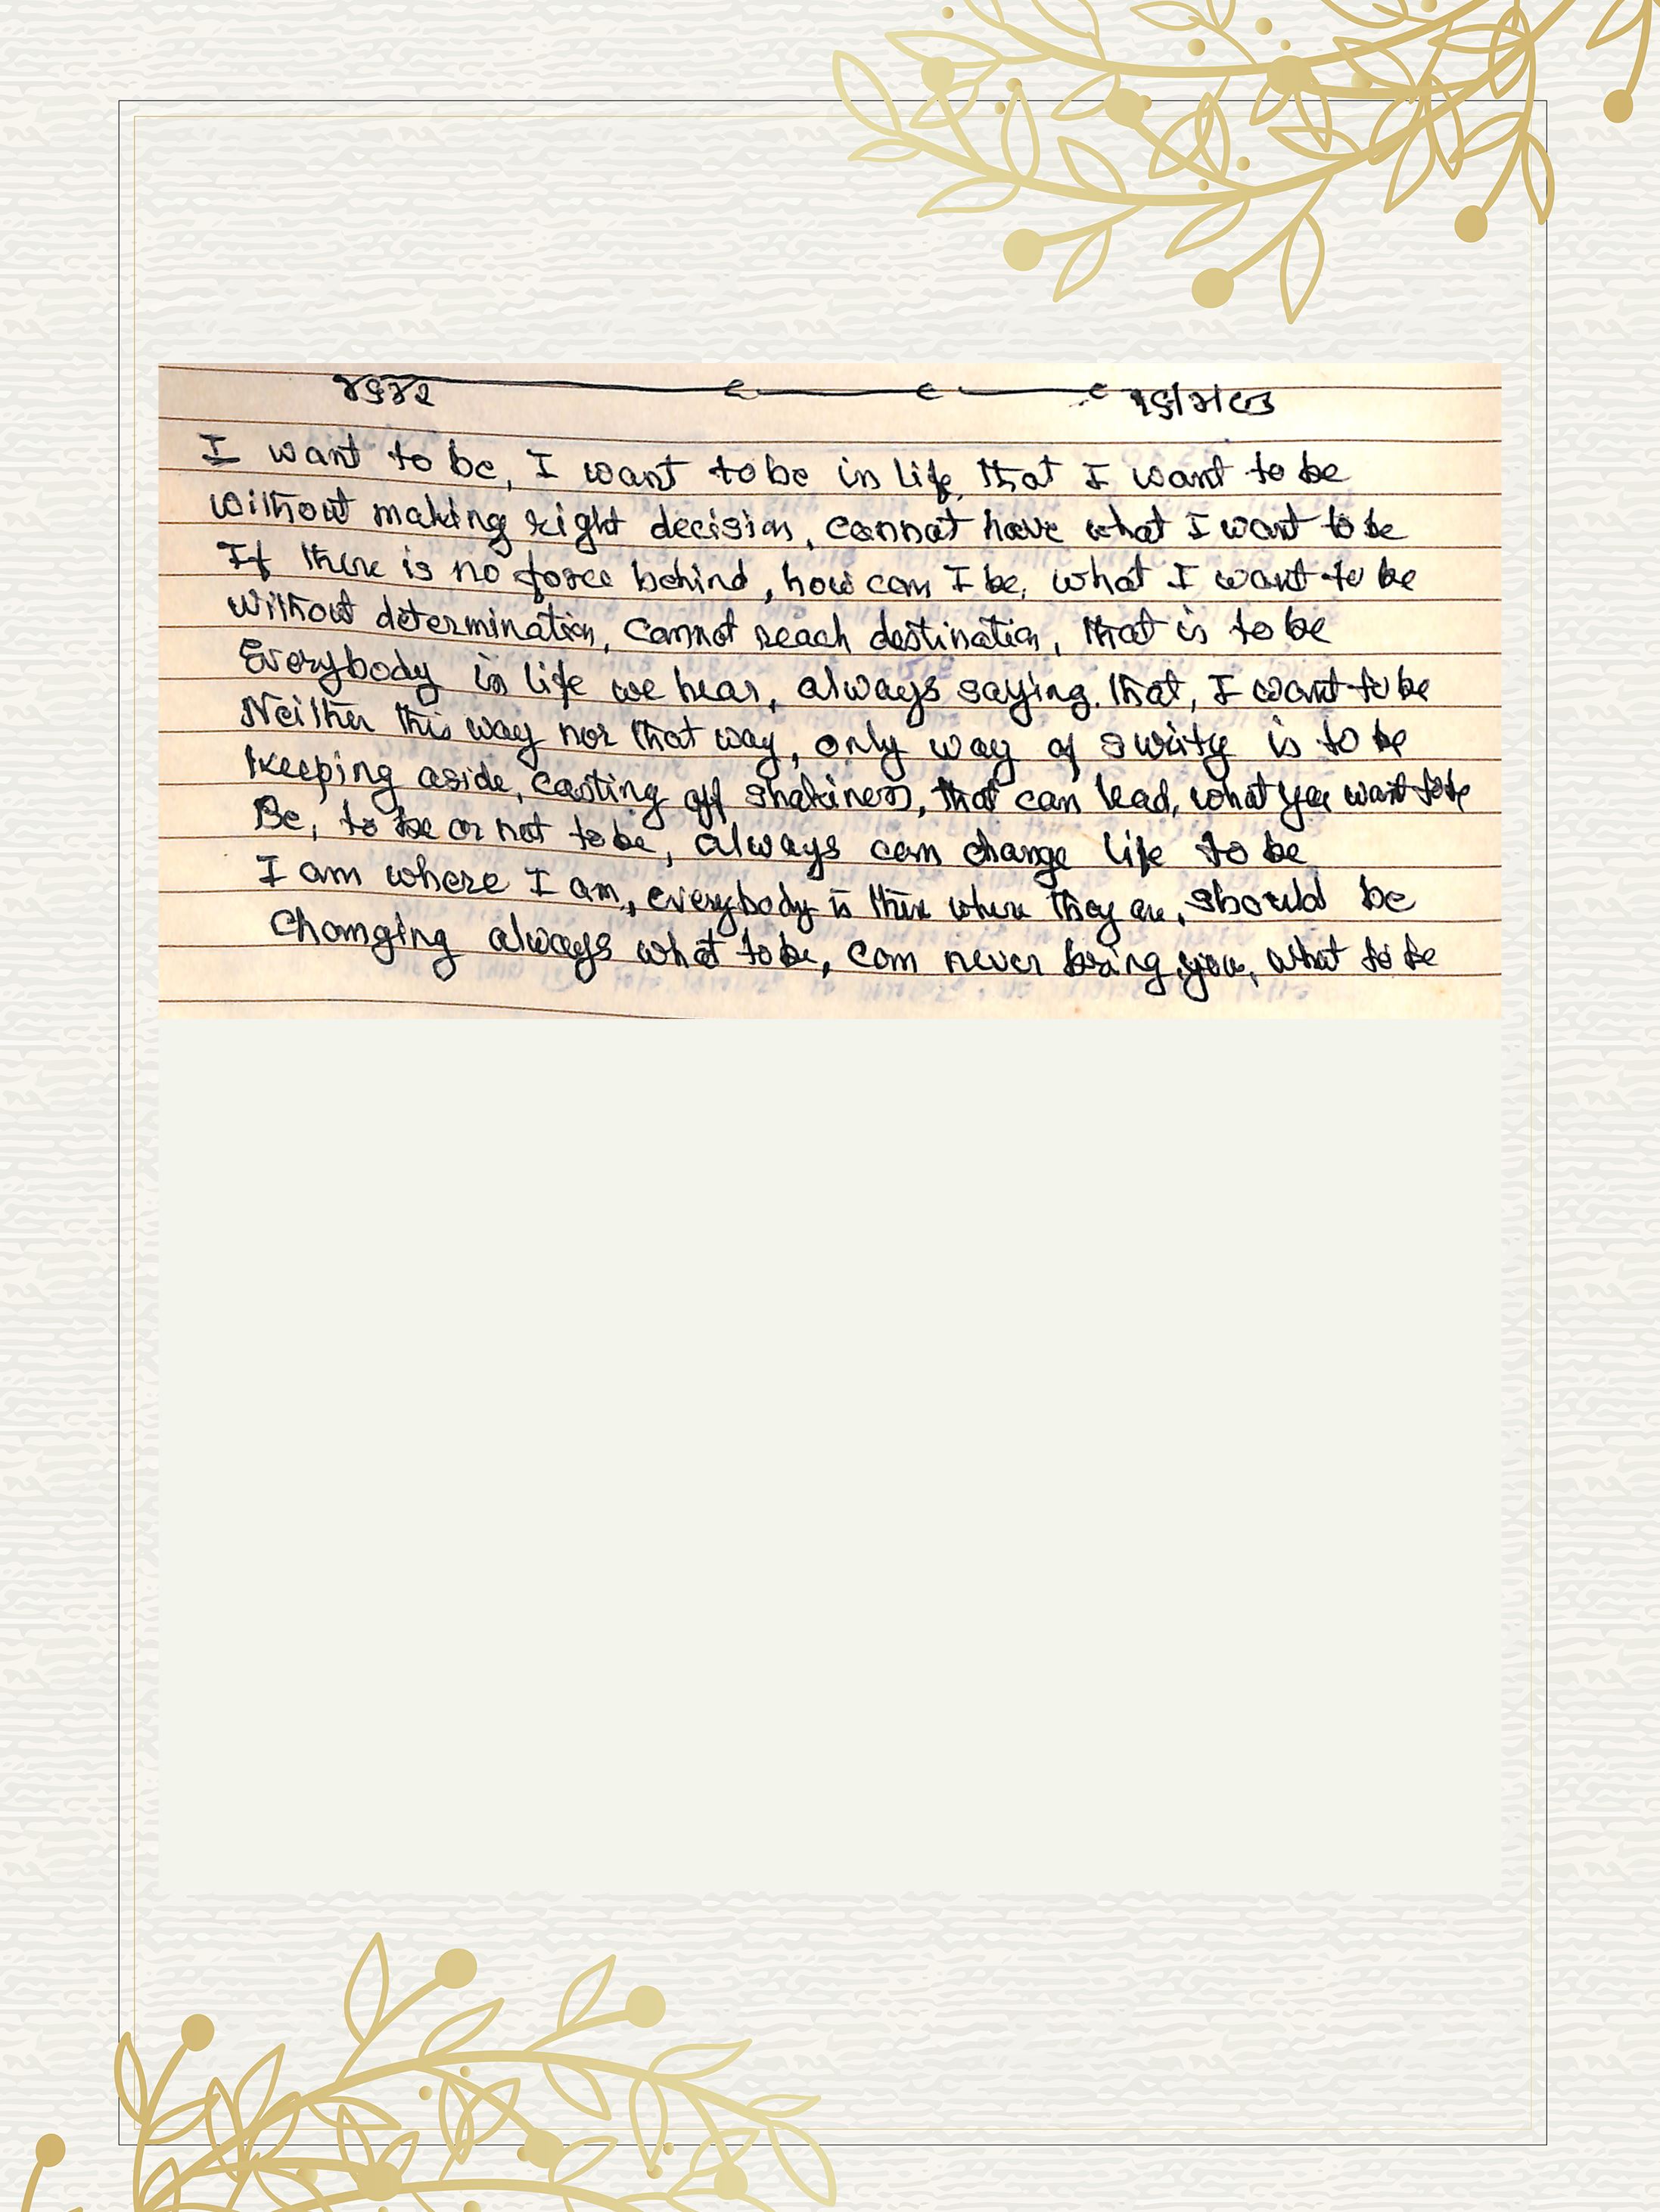 I want to be, I want to be in life, that I want to be
without making right decision, cannot have what I want to be
If there is no force behind, how can I be, what I want to be
Without determination, cannot reach destination, that is to be
Everybody in life we hear, always saying that, I want to be
Neither this way nor that way, only way of surity is to be
keeping aside, casting off shakiness, that can lead, what you want to be
Be, to be or not to be, always can change life to be
I am where I am, everybody is there where they are, should be
Changing always what to be, can never bring you, what to be